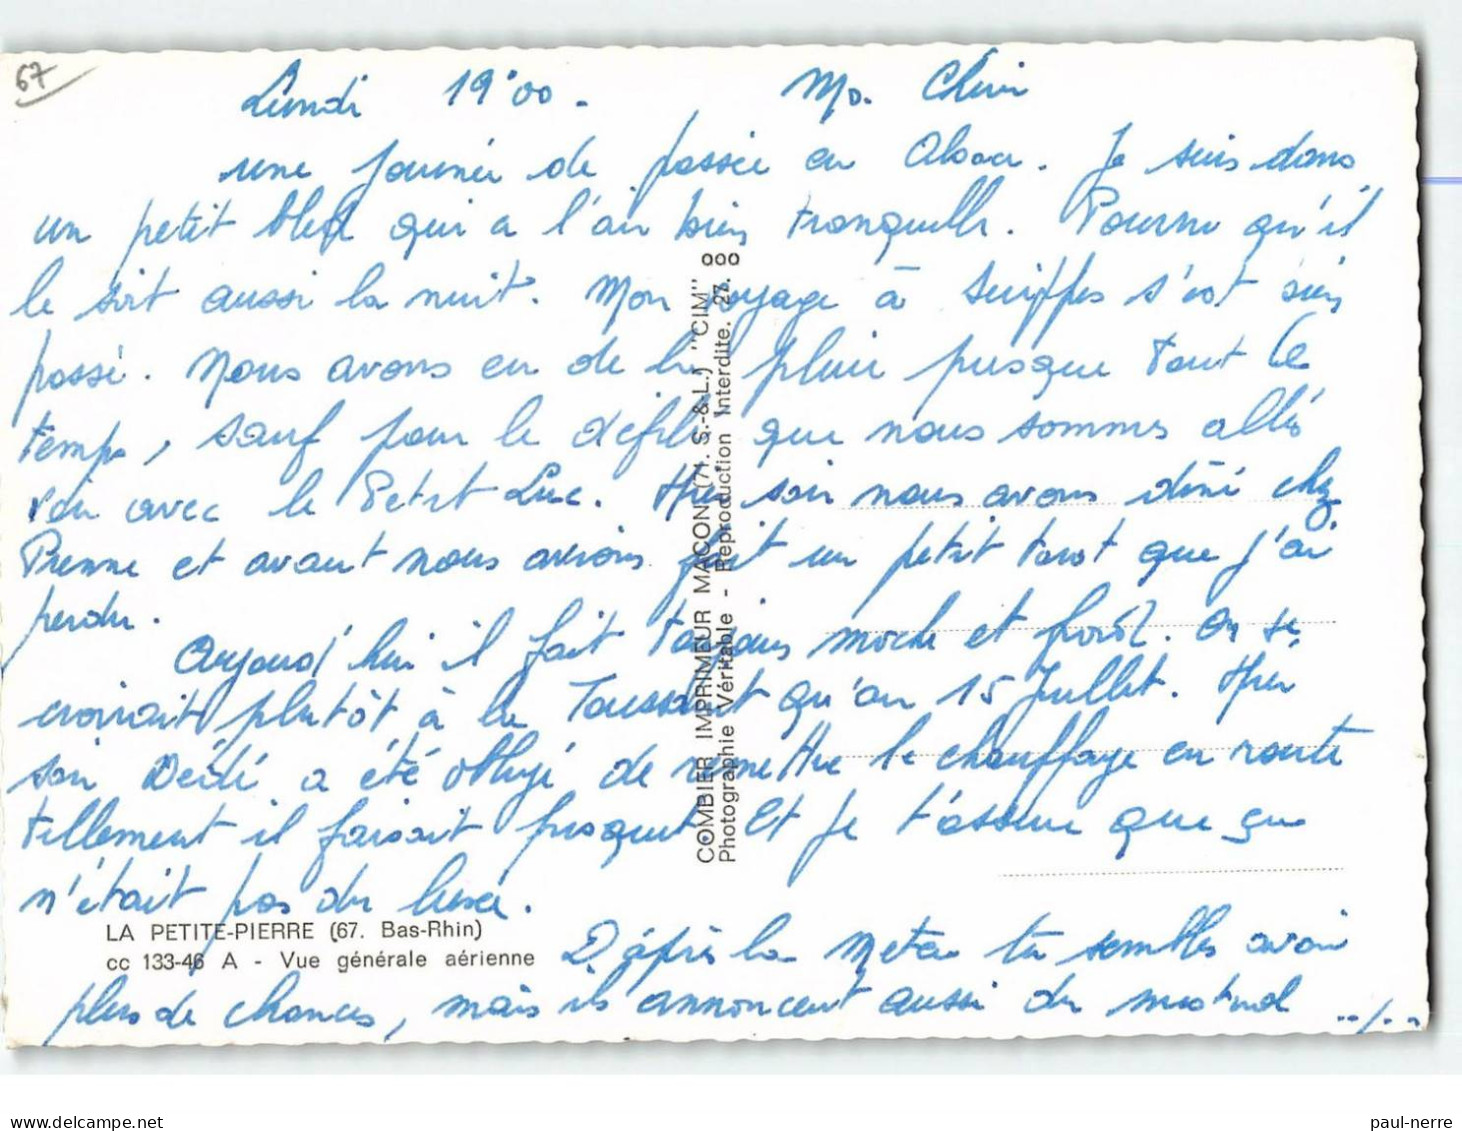 67
Lundi 19h00. Ma Chérie
une journée de passée en Alsace. Je suis dans
un petit bled qui a l'air bien tranquille. Pourvu qu'il
le soit aussi la nuit. Mon voyage à Suippes s'est bien
passé. Nous avons eu de la pluie presque tout le
temps, sauf pour le défilé que nous sommes allés
voir avec le Petit Luc. Hier soir nous avons dîné chez
et avant nous avions fait un petit tarot que j'ai
perdu.
Aujourd'hui il fait toujours moche et froid. On se
croirait plutôt à la Toussaint qu'au 15 Juillet. Hier
soir Dédé a été obligé de remettre le chauffage en route
tellement il faisait frisquet. Et je t'assure que ça
n'était pas du luxe.
D'après la Météo tu sembles avoir
plus de chances, mais ils annoncent aussi du mistral
../..
LA PETITE-PIERRE (67. Bas-Rhin)
cc 133-46 A - Vue générale aérienne
COMBIER IMPRIMEUR MACON (71. S.-&-L.) "CIM"
Photographie Véritable - Reproduction Interdite. 27. 000
paul-nerre